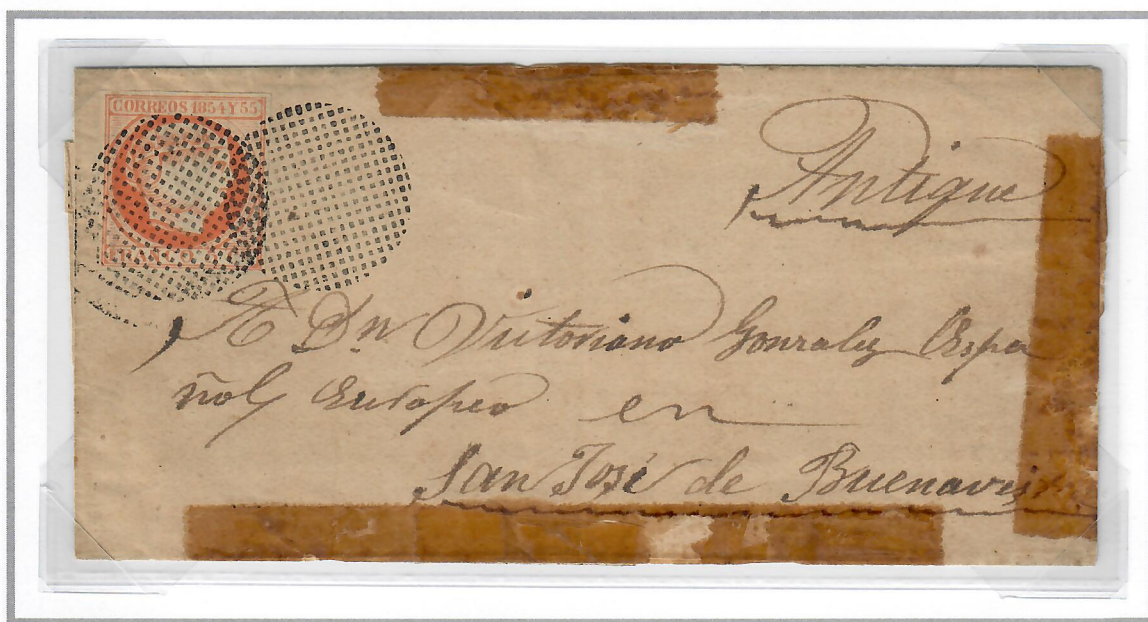 CORREOS 1854 Y 55
FRANCO
Antique
A Dn. Vitoriano Gonzalez Espa
ñol Europeo en
San José de Buenavis